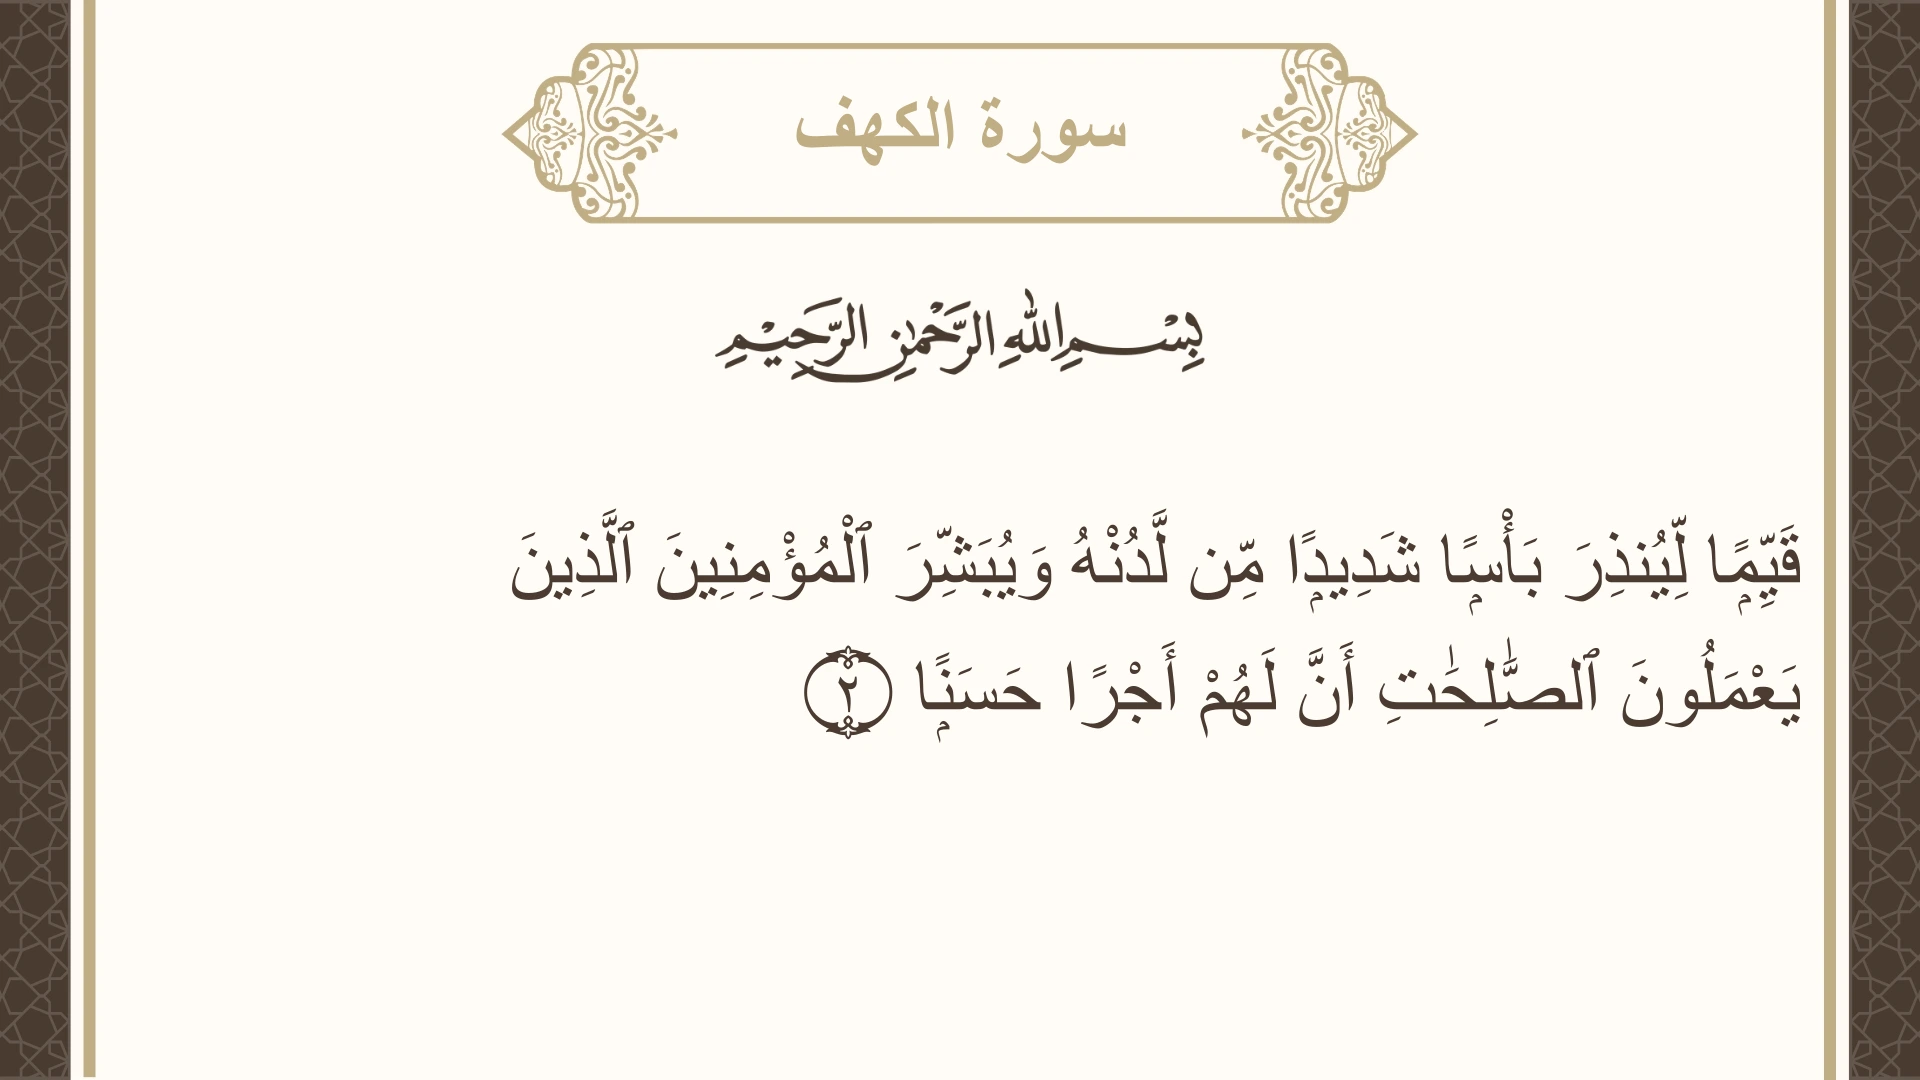 سورة الكهف
بِسْمِ اللهِ الرَّحْمٰنِ الرَّحِيْمِ
قَيِّمًۭا لِّيُنذِرَ بَأْسًۭا شَدِيدًۭا مِّن لَّدُنْهُ وَيُبَشِّرَ ٱلْمُؤْمِنِينَ ٱلَّذِينَ
يَعْمَلُونَ ٱلصَّـٰلِحَـٰتِ أَنَّ لَهُمْ أَجْرًا حَسَنًۭا ٢